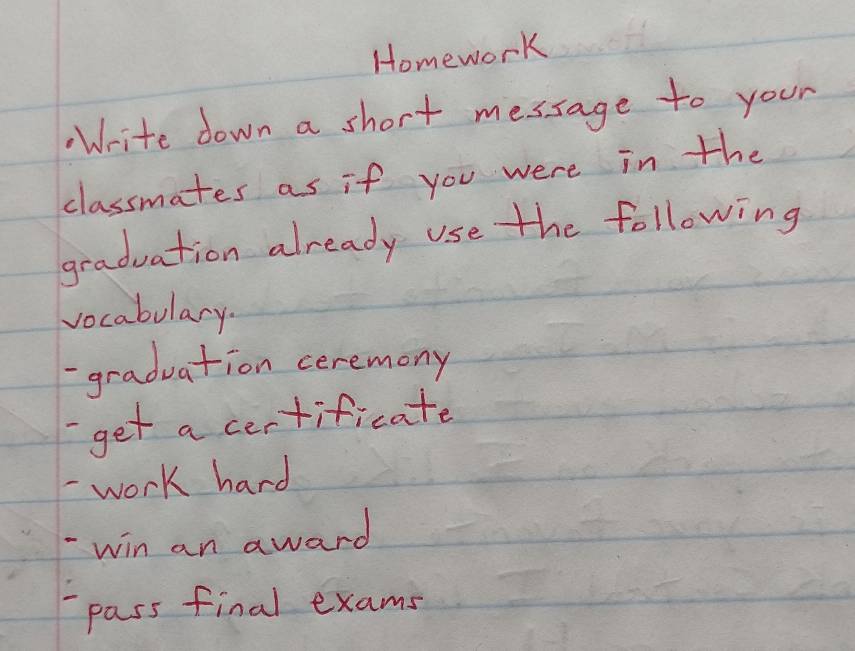 Homework
•Write down a short message to your
classmates as if you were in the
graduation already use the following
vocabulary.
- graduation ceremony
- get a certificate
- work hard
- win an award
- pass final exams